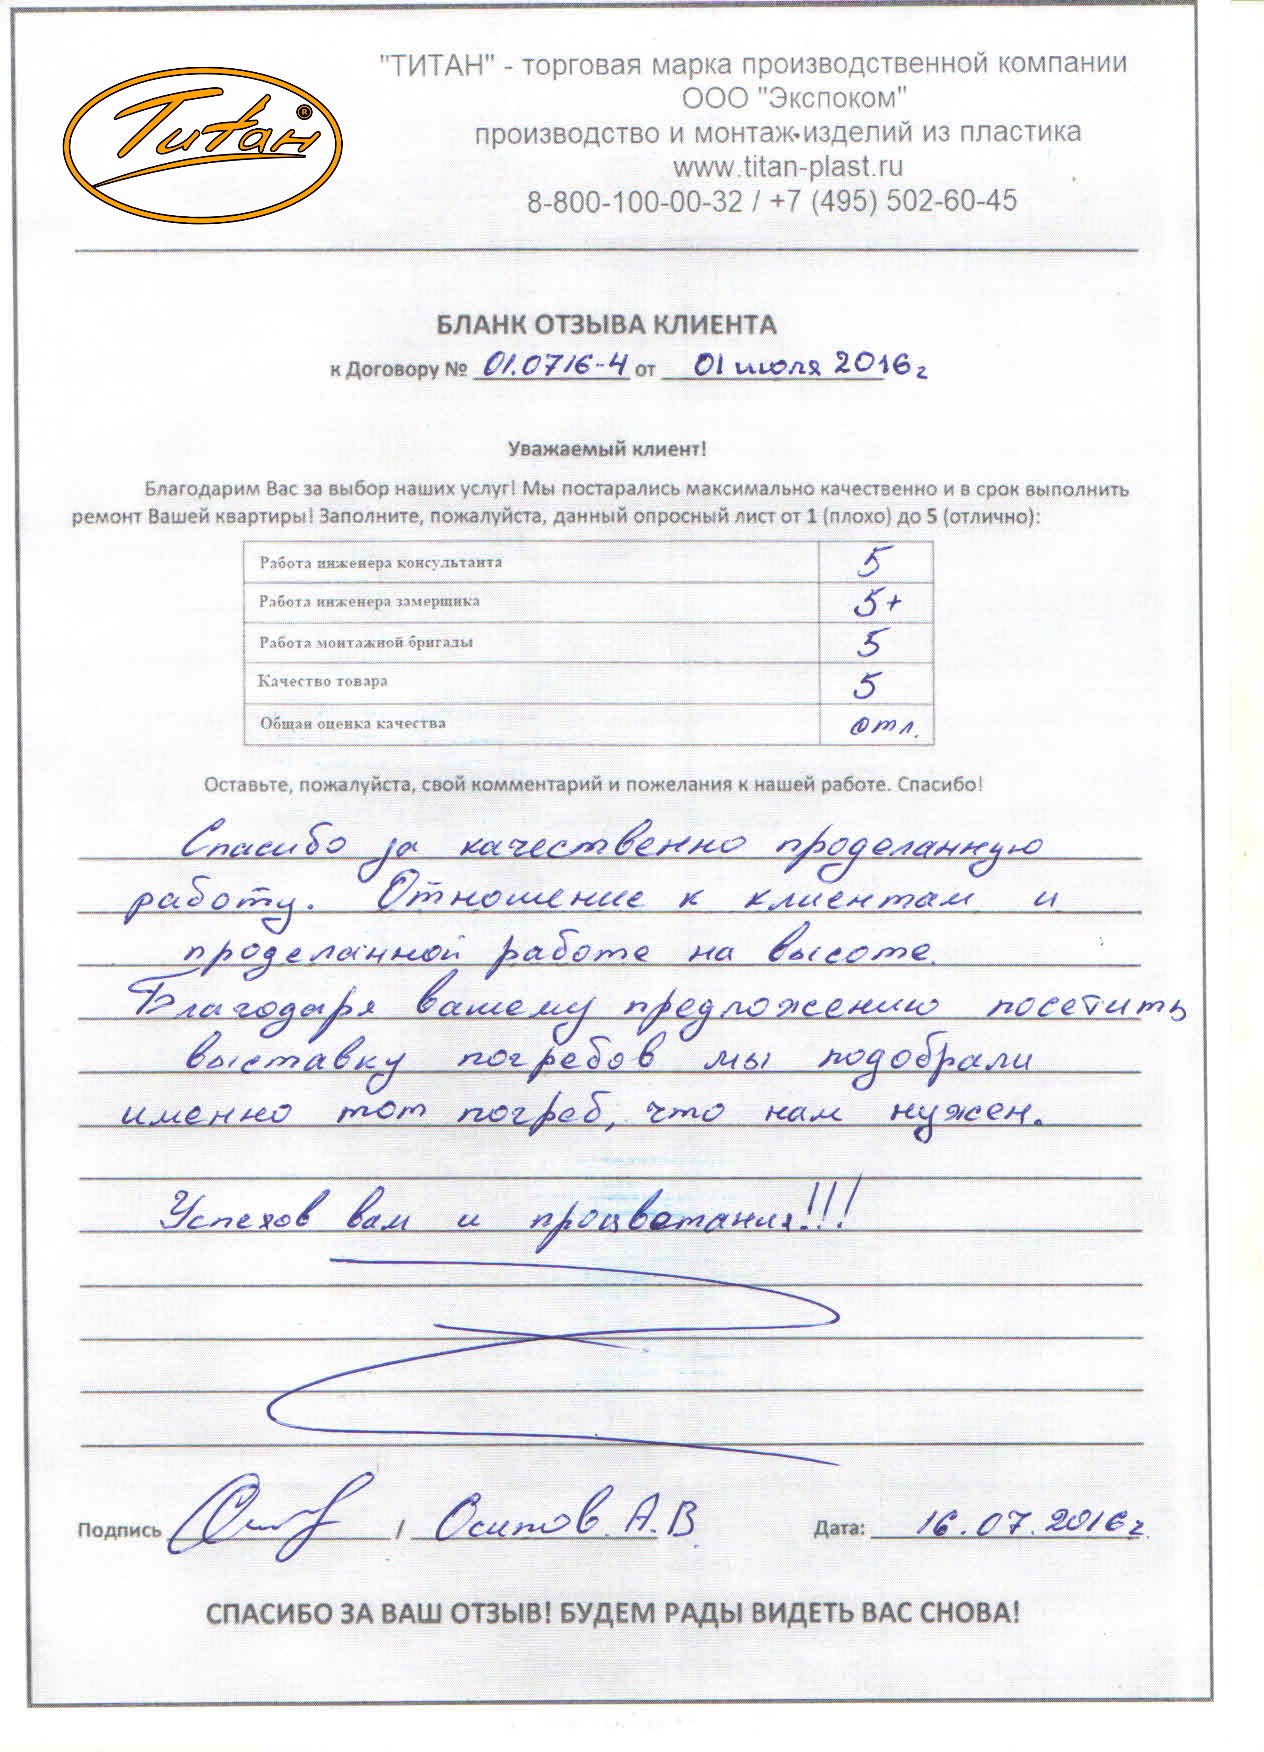 Титан ®
"ТИТАН" - торговая марка производственной компании
ООО "Экспоком"
производство и монтаж изделий из пластика
www.titan-plast.ru
8-800-100-00-32 / +7 (495) 502-60-45
БЛАНК ОТЗЫВА КЛИЕНТА
к Договору № 01.0716-4 от 01 июля 2016 г
Уважаемый клиент!
Благодарим Вас за выбор наших услуг! Мы постарались максимально качественно и в срок выполнить
ремонт Вашей квартиры! Заполните, пожалуйста, данный опросный лист от 1 (плохо) до 5 (отлично):
Работа инженера консультанта 5
Работа инженера замерщика 5+
Работа монтажной бригады 5
Качество товара 5
Общая оценка качества отл.
Оставьте, пожалуйста, свой комментарий и пожелания к нашей работе. Спасибо!
Спасибо за качественно проделанную
работу. Отношение к клиентам и
проделанной работе на высоте.
Благодаря вашему предложению посетить
выставку погребов мы подобрали
именно тот погреб, что нам нужен.
Успехов вам и процветания!!!
Подпись / Осипов А.В Дата: 16.07.2016г.
СПАСИБО ЗА ВАШ ОТЗЫВ! БУДЕМ РАДЫ ВИДЕТЬ ВАС СНОВА!